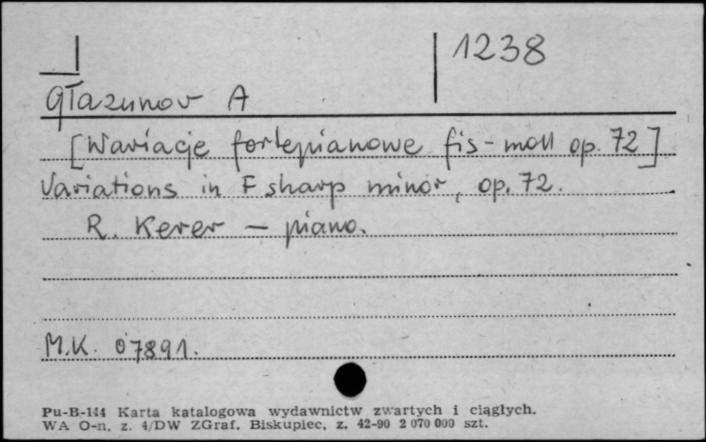 1238
Głazunov A
[Wariacje fortepianowe fis-moll op. 72]
Variations in F sharp minor, op. 72.
R. Kerer – piano.
M.K. 07891.
Pu-B-144 Karta katalogowa wydawnictw zwartych i ciągłych.
WA O-n, z. 4/DW ZGraf. Biskupiec, z. 42-90 2 070 000 szt.